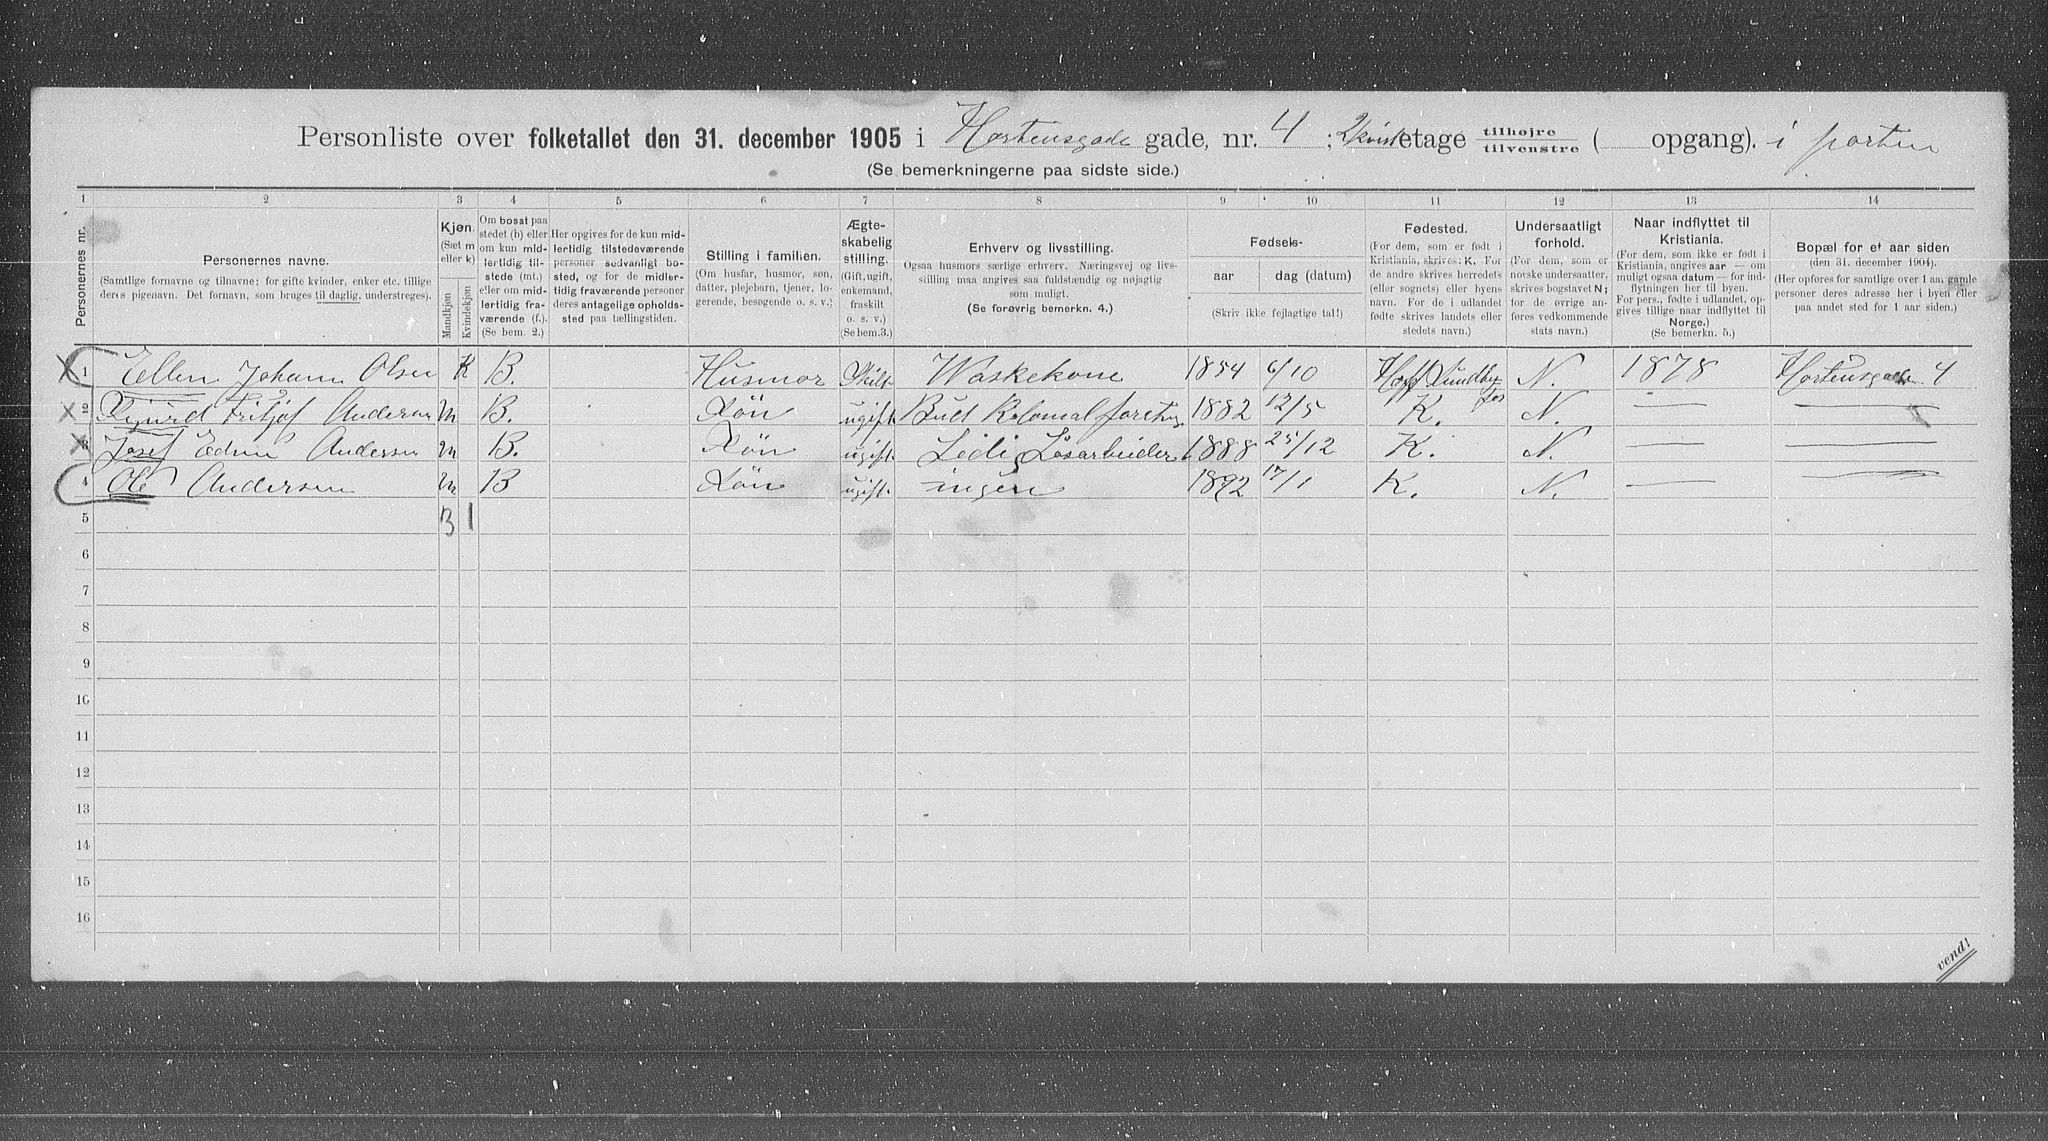 Personliste over folketallet den 31. december 1905 i Hortensgade gade, nr. 4 ; 2 kvist etage tilhøjre tilvenstre ( opgang). i porten
(Se bemerkningerne paa sidste side.)
1 2 3 4 5 6 7 8 9 10 11 12 13 14
Personernes nr.
Personernes navne.
(Samtlige fornavne og tilnavne; for gifte kvinder, enker etc. tillige
deres pigenavn. Det fornavn, som bruges til daglig, understreges).
Kjøn.
(Sæt m
eller k)
Mandkjøn
Kvindekjøn
Om bosat paa
stedet (b) eller
om kun mid-
lertidig til-
stede (mt.)
eller om mid-
lertidig fra-
værende (f.).
(Se bem. 2.)
Her opgives for de kun mid-
lertidig tilstedeværende
personer sedvanligt bo-
sted, og for de midler-
tidig fraværende personer
deres antagelige opholds-
sted paa tællingstiden.
Stilling i familien.
(Om husfar, husmor, søn,
datter, plejebarn, tjener, lo-
gerende, besøgende o. s. v.)
Ægte-
skabelig
stilling.
(Gift, ugift,
enkemand,
fraskilt
o. s. v.)
(Se bem.3.)
Erhverv og livsstilling.
Ogsaa husmors særlige erhverv. Næringsvej og livs-
stilling maa angives saa fuldstændig og nøjagtig
som muligt.
(Se forøvrig bemerkn. 4.)
Fødsels-
aar
dag (datum)
(Skriv ikke fejlagtige tal!)
Fødested.
(For dem, som er født i
Kristiania, skrives: K. For
de andre skrives herredets
(eller sognets) eller byens
navn. For de i udlandet
fødte skrives landets eller
stedets navn.)
Undersaatligt
forhold.
(For dem, som er
norske undersaatter,
skrives bogstavet N;
for de øvrige an-
føres vedkommende
stats navn.)
Naar indflyttet til
Kristiania.
(For dem, som ikke er født i
Kristiania, angives aar — om
muligt ogsaa datum — for ind-
flytningen her til byen.
For pers., fødte i udlandet, op-
gives tillige naar indflyttet til
Norge.)
(Se bemerkn. 5.)
Bopæl for et aar siden
(den 31. december 1904).
(Her opføres for samtlige over 1 aar gamle
personer deres adresse her i byen eller
paa andet sted for 1 aar siden.)
1 Ellen Johann Olsen K B. Husmor Skilt Waskekone 1854 6/10 Hoff N. 1878 Hortensgade 4
2 Fritjof Andersen m B. Søn ugift 1882 12/5 K. N. — —
3 Josef Edvin Andersen m B. Søn ugift Løsarbeider 1888 25/12 K. N. — —
4 Ole Andersen m B Søn ugift ingen 1892 17/1 K. N. — —
5 3 1
6
7
8
9
10
11
12
13
14
15
16
vend!